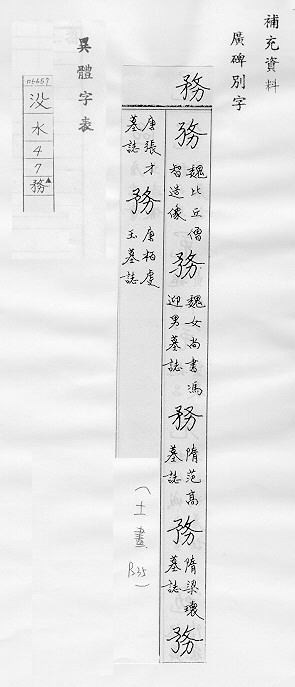 補充資料
廣碑別字
務
務 魏比丘僧智造像 務 魏女尚書馮迎男墓誌 務 隋范高墓誌 務 隋梁瓌墓誌 務
唐張才墓誌 務 唐栢虔玉墓誌
(土畫 P.35)
異體字表
没 水 4 7 務▲